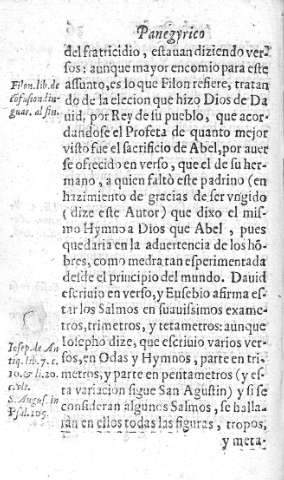 Panegyrico
del fratricidio, estauan diziendo ver-
sos: aunque mayor encomio para este
assunto, es lo que Filon refiere, tratan
do de la elecion que hizo Dios de Da
uid, por Rey de su pueblo, que acor-
dandose el Profeta de quanto mejor
visto fue el sacrificio de Abel, por auer
se ofrecido en verso, que el de su her-
mano, a quien faltò este padrino (en
hazimiento de gracias de ser vngido
(dize este Autor) que dixo el mis-
mo Hymno a Dios que Abel, pues
quedaria en la aduertencia de los hō-
bres, como medra tan esperimentada
desde el principio del mundo. Dauid
escriuio en verso, y Eusebio afirma es
tar los Salmos en suauissimos exame-
tros, trimetros, y tetametros: aunque
Iosepho dize, que escriuio varios ver-
sos, en Odas y Hymnos, parte en tri-
metros, y parte en pentametros (y es-
ta variacion sigue San Agustin) y si se
consideran algunos Salmos, se halla-
ràn en ellos todas las figuras, tropos,
y meta-
Filon. lib. de
cōfusion liu-
guar. al fin.
Iosep. de An
tiq. lib. 7. c.
10. & li. 20.
c. vlt.
S. Augus. in
Psal. 105.